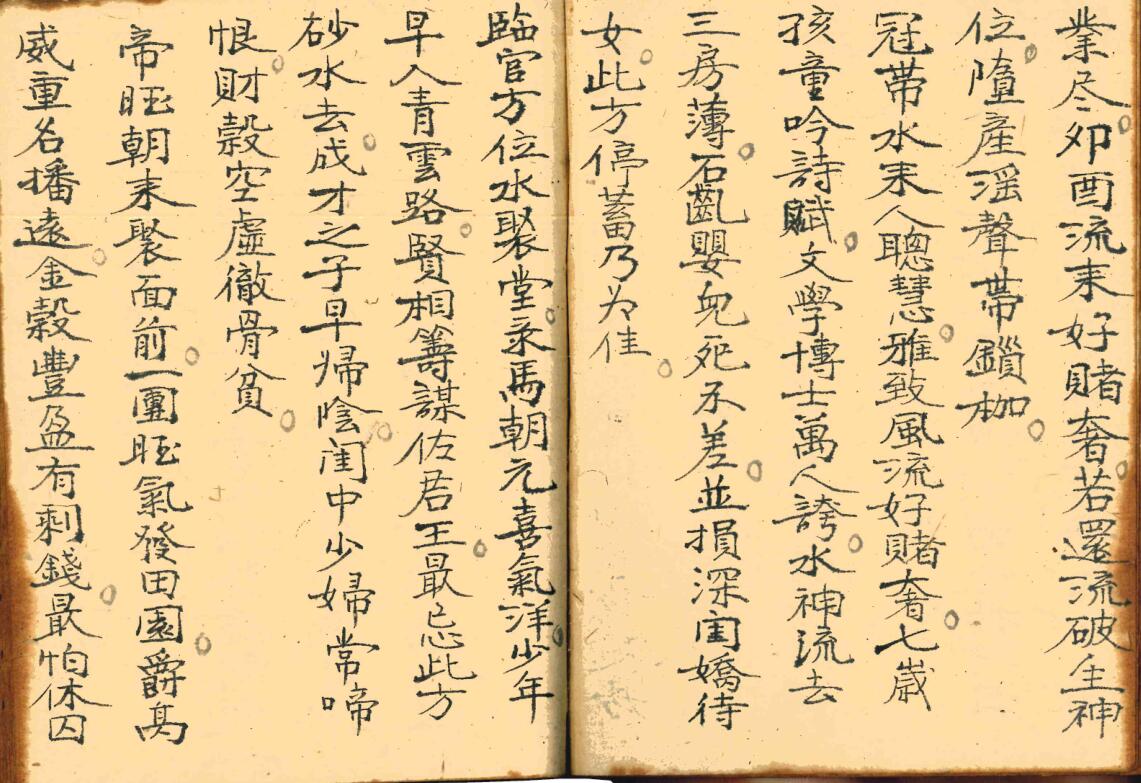 業尽卯酉流来好賭奢若還流破生神
位墮產滛聲帶鎖枷
冠帶水来人聰慧雅致風流好賭奢七歲
孩童吟詩賦文學博士萬人誇水神流去
三房薄石齓嬰兒死不差並損深闺嬌待
女此方停蓄乃为佳
臨官方位水聚堂录馬朝元喜氣洋少年
早入青雲路賢相籌謀佐君王最忌此方
砂水去成才之子早帰陰闺中少婦常啼
恨財榖空虛徹骨貧
帝旺朝来聚面前一團旺氣發田園爵髙
威重名播遠金榖豐盈有剩錢最怕休囚